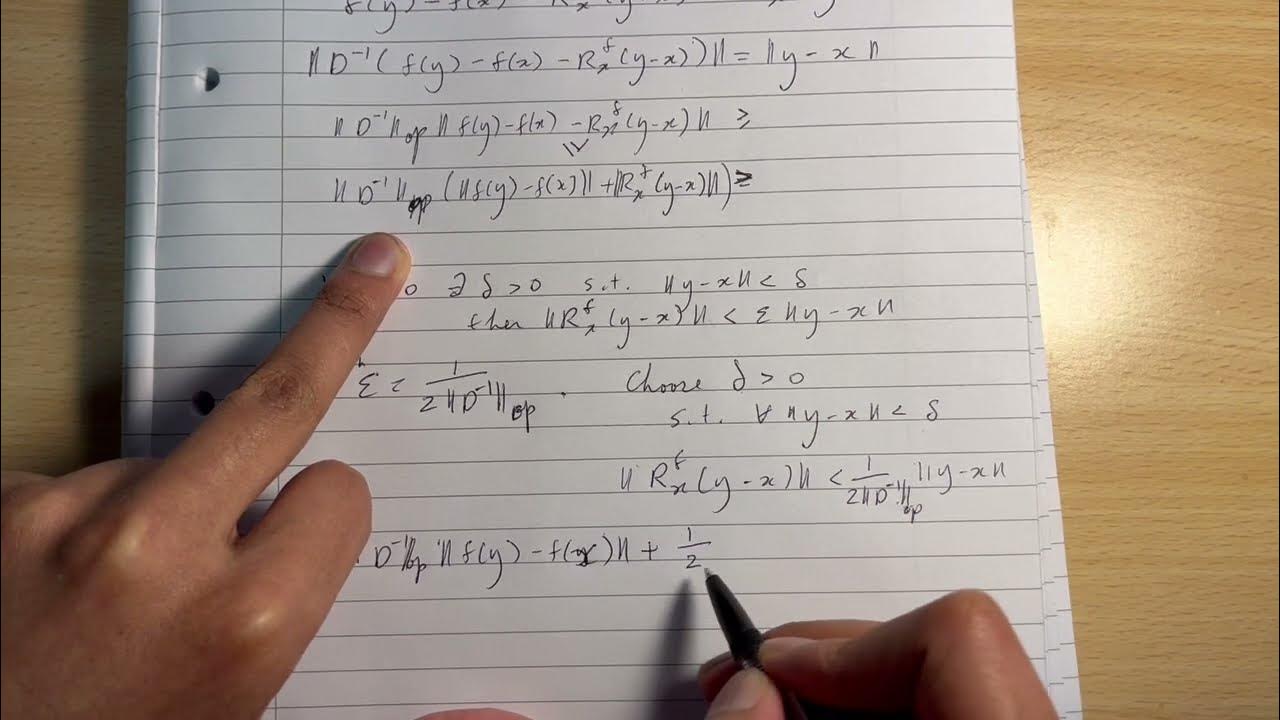 f(y) - f(x) - Rₓᶠ(y-x)
‖D⁻¹(f(y) - f(x) - Rₓᶠ(y-x))‖ = ‖y - x‖
‖D⁻¹‖op ‖f(y) - f(x) - Rₓᶠ(y-x)‖ ≥
≤
‖D⁻¹‖op (‖f(y) - f(x)‖ + ‖Rₓᶠ(y-x)‖) ≥
0 ∃ δ > 0 s.t. ‖y - x‖ < δ
then ‖Rₓᶠ(y-x)‖ < Σ ‖y - x‖
Σ = 1/2‖D⁻¹‖op . Choose δ > 0
s.t. ∀ ‖y - x‖ < δ
‖Rₓᶠ(y - x)‖ < 1/2‖D⁻¹‖op ‖y - x‖
D⁻¹‖op ‖f(y) - f(x)‖ + 1/2